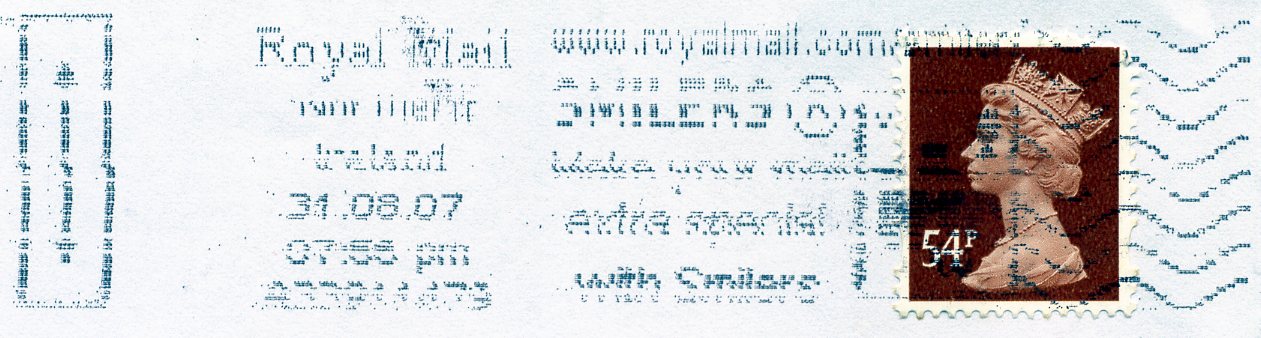 Royal Mail
Northern
Ireland
31.08.07
07:55 pm
www.royalmail.com/smilers
SMILERS
Make your mail
extra special
with Smilers
54P